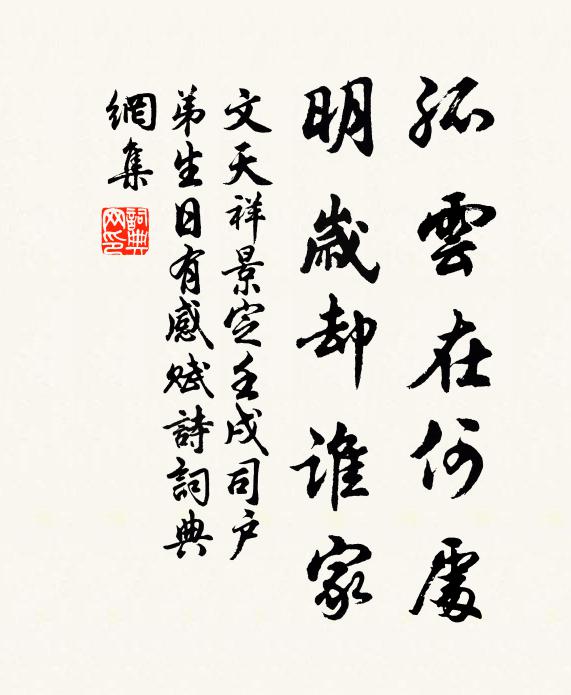 孤雲在何處
明歲却誰家
文天祥景定壬戌司户
弟生日有感賦詩詞典
網集
詞典網印